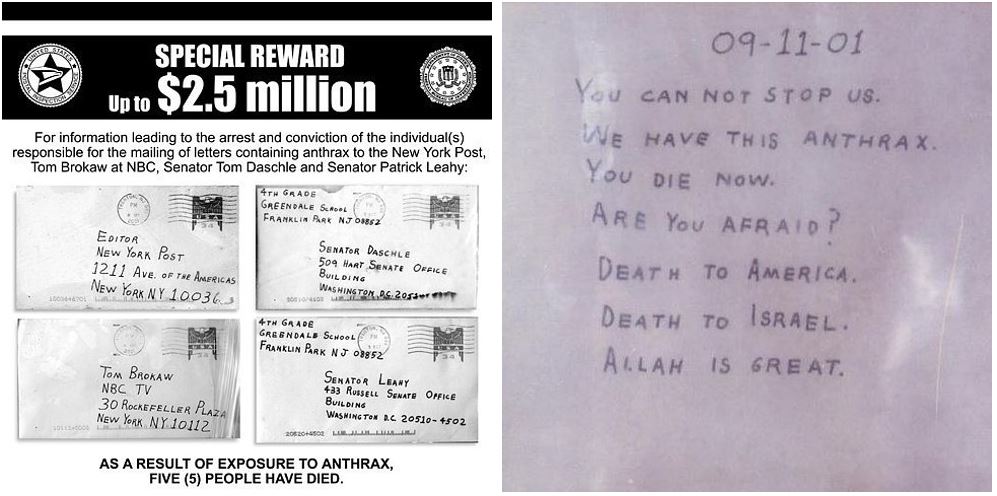 UNITED STATES
POSTAL INSPECTION SERVICE
SPECIAL REWARD
Up to $2.5 million
For information leading to the arrest and conviction of the individual(s)
responsible for the mailing of letters containing anthrax to the New York Post,
Tom Brokaw at NBC, Senator Tom Daschle and Senator Patrick Leahy:
EDITOR
NEW YORK POST
1211 AVE. OF THE AMERICAS
NEW YORK NY 10036
USA
34
4TH GRADE
GREENDALE SCHOOL
FRANKLIN PARK NJ 08852
SENATOR DASCHLE
509 HART SENATE OFFICE
BUILDING
WASHINGTON D.C. 20510
USA
34
TOM BROKAW
NBC TV
30 ROCKEFELLER PLAZA
NEW YORK NY 10112
USA
34
4TH GRADE
GREENDALE SCHOOL
FRANKLIN PARK NJ 08852
SENATOR LEAHY
433 RUSSELL SENATE OFFICE
BUILDING
WASHINGTON D.C. 20510-4502
USA
34
20520+4502
AS A RESULT OF EXPOSURE TO ANTHRAX,
FIVE (5) PEOPLE HAVE DIED.
09-11-01
YOU CAN NOT STOP US.
WE HAVE THIS ANTHRAX.
YOU DIE NOW.
ARE YOU AFRAID?
DEATH TO AMERICA.
DEATH TO ISRAEL.
ALLAH IS GREAT.